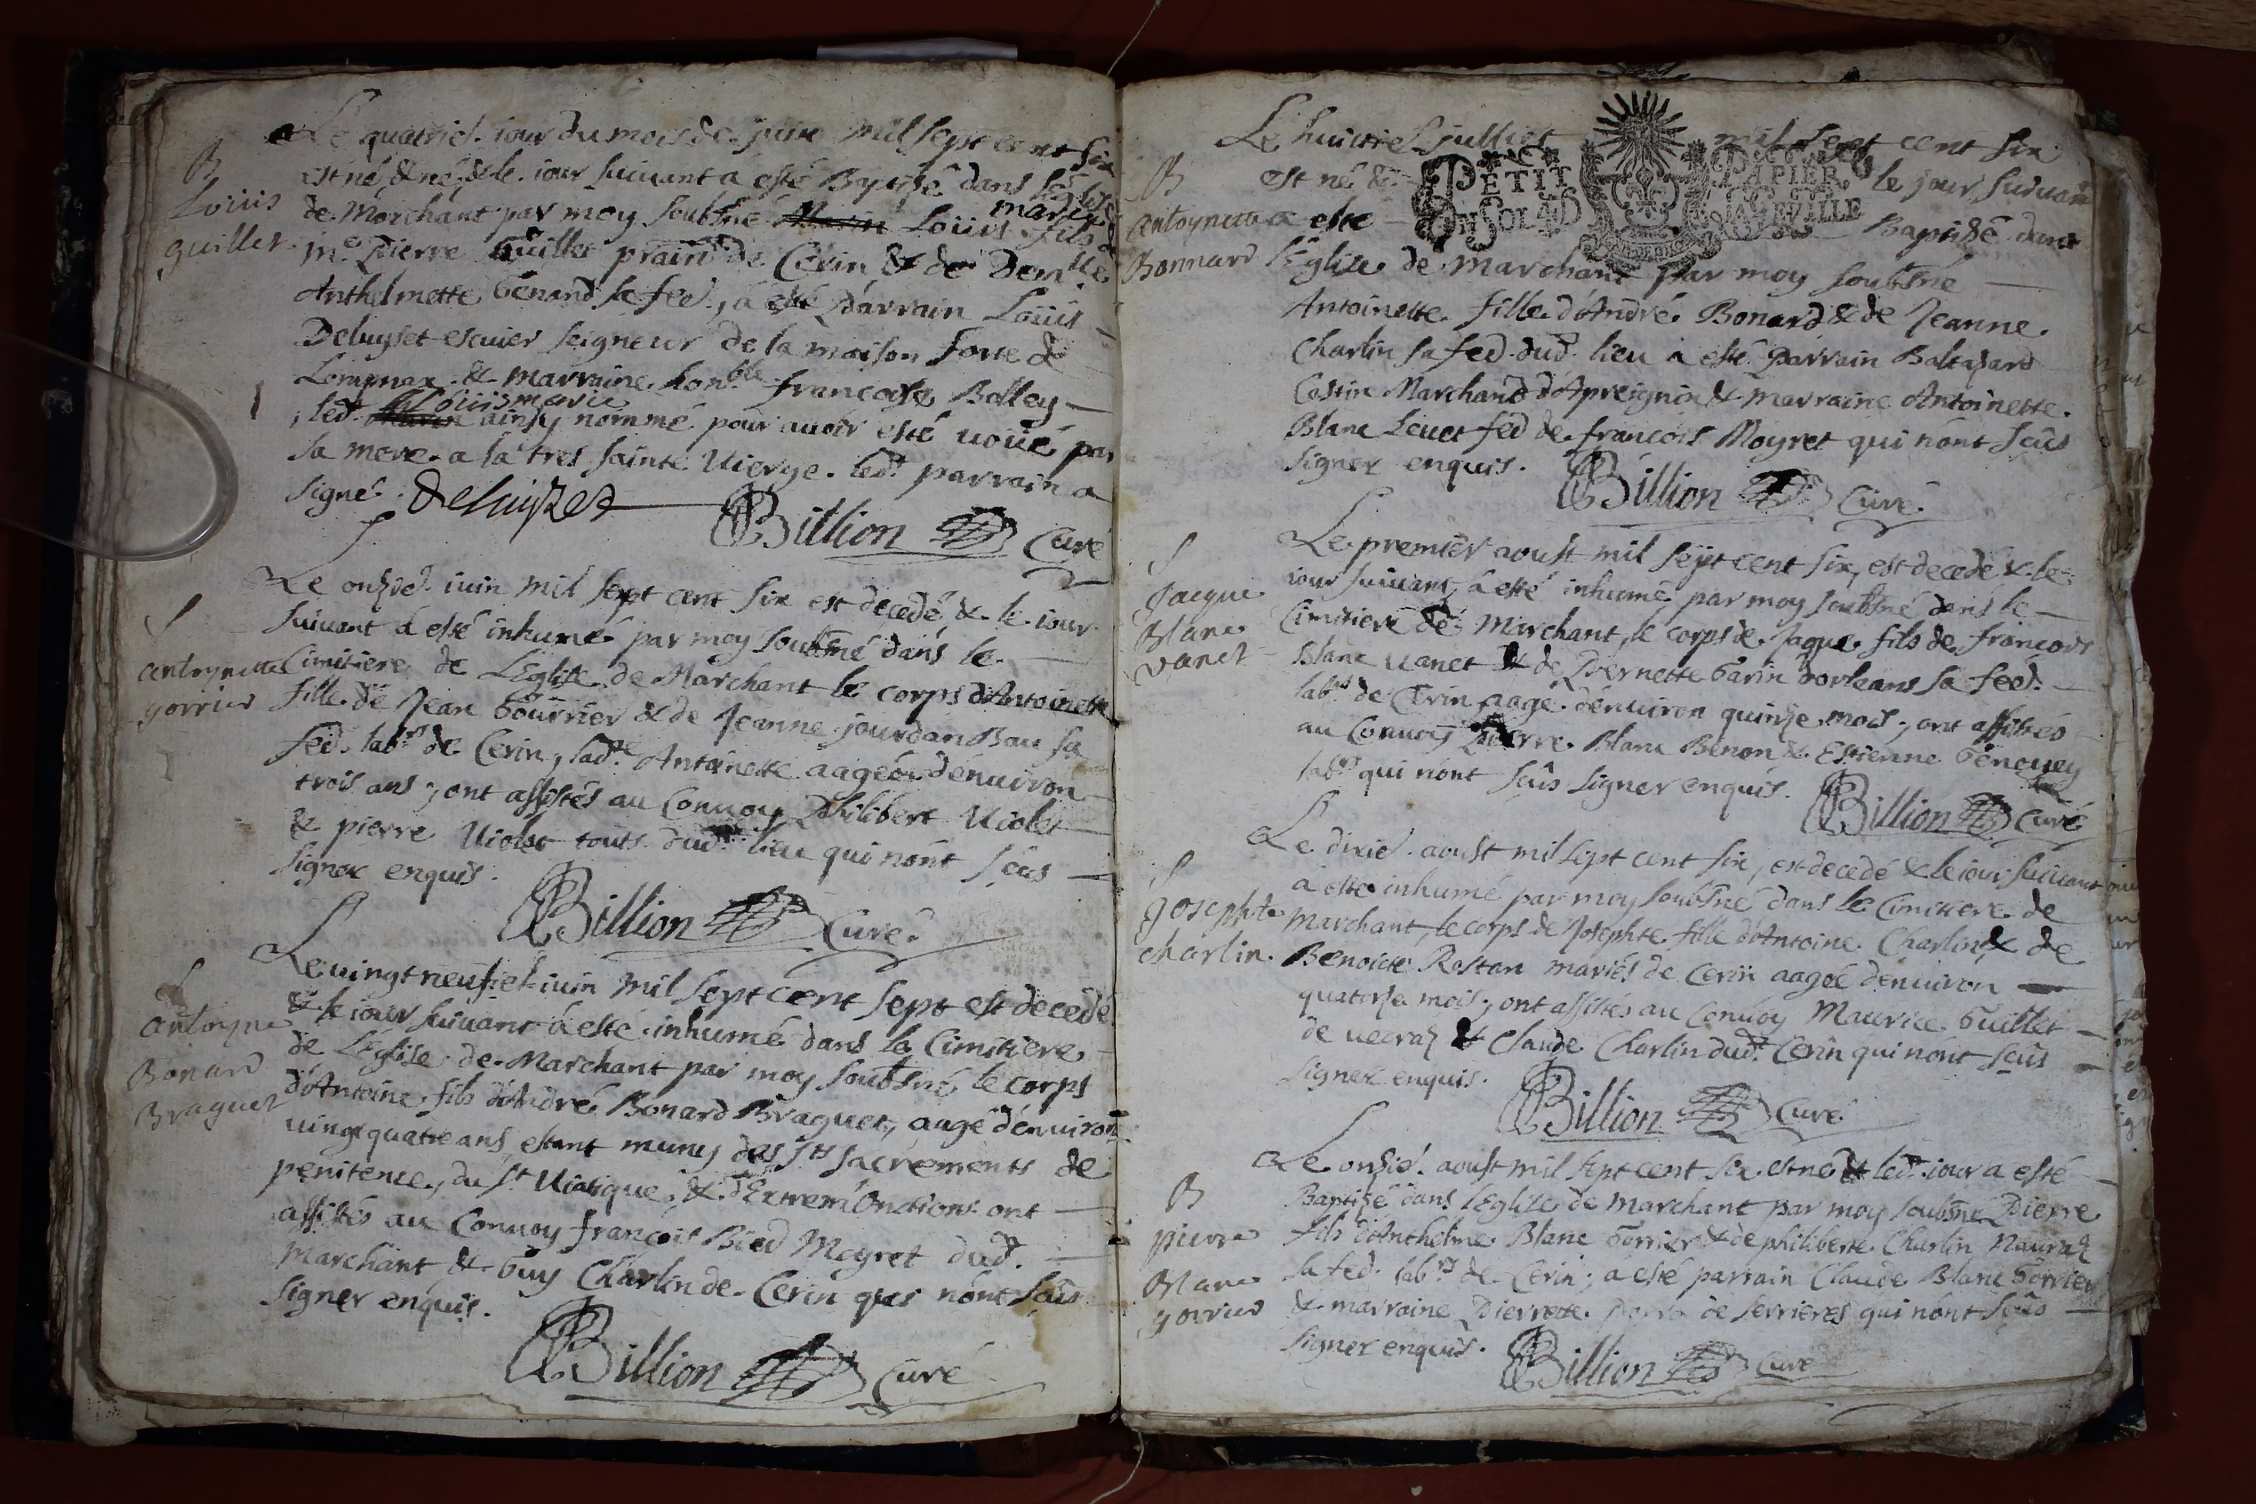 Le quatrie. jour du mois de juin mil sept cent six
B
est né & le jour suivant a esté Baptisé dans
Loüis
de Marchant par moy soubsné Loüis marie fils de
guillet
Me Pierre Guillet de Cerin & de Demlle
Anthelmette Genand sa fed., a esté parrain Loüis
Deluyset escuier seigneur de la maison forte de
Lompnax & marraine honble francoise Balley
led. Loüis marie ainsy nommé pour avoir esté voüé par
sa mere a la tres sainte Vierge. led. parrain a
signé. Deluyzet
Billion Curé
Le onzie. iuin mil sept cent six est decedé & le iour
S
suivant a esté inhumé par moy soubsné dans le
antoynette
Cimitiere de L'Eglise de Marchant le corps d'Antoinette
gorrier
fille de Jean Gourrier & de Jeanne jourdan Bau sa
fed. labrs de Cerin, lade Antoinette aagée d'environ
trois ans, ont assistés au Convoy Philibert Violet
& pierre Violet touts dud. lieu qui n'ont sçus
signer enquis.
Billion Curé
Le vingt neufie. iuin mil sept cent sept est decedé
S
& le iour suivant a esté inhumé dans le Cimitiere
antoyne
de L'Eglise de Marchant par moy soubsné, le corps
Bonard
d'Antoine fils d'André Bonard Braguet, aagé d'environ
Braguet
vingt quatre ans, estant muny des sts sacrements de
penitence, du st Viatique, & d'Extreme Onction: ont
assistés au Convoy françois Bied Moyret dud.
Marchant & Guy Charlin de Cerin qui n'ont sçûs
signer enquis.
Billion Curé
Le huictie. julliet mil sept cent six
B
est né & le jour suivant
PETIT PAPIER
EN SOL A D LA FEVILLE
antoynette
a esté Baptisé dans
Bonnard
l'Eglize de Marchant par moy soubsné
Antoinette fille d'André Bonard & de Jeanne
Charlin sa fed. dud. lieu a esté parrain Baltazard
Costin Marchand d'Apreignin & marraine Antoinette
Blanc Levet fed de francois Moyret qui n'ont sçûs
signer enquis.
Billion Curé
Le premier aoust mil sept cent six, est decedé & le
S
iour suivant, a esté inhumé par moy soubsné dans le
Jacque
Cimitiere de Marchant, le corps de Jaque fils de francois
Blanc
Blanc vanet & de Pernette Garin dorleans sa fed.
vanet
labrs de Cerin aagé d'environ quinze mois, ont assistés
au Convoy Pierre Blanc Benon & Estienne Genouey
labrs qui n'ont sçûs signer enquis.
Billion Curé
Le dixie. aoust mil sept cent six, est decedé & le iour suivant
S
a esté inhumé par moy soubsné dans le Cimitiere de
Josephte
Marchant, le corps de Josephte fille d'Antoine Charlin & de
charlin.
Benoitte Rostan mariés de Cerin aagée d'environ
quatorze mois, ont assistés au Convoy Maurice Guillet
de vecraz & Claude Charlin dud. Cerin qui n'ont sçûs
signer enquis.
Billion Curé
Le onzie. aoust mil sept cent six est né & led. iour a esté
B
Baptizé dans l'Eglize de Marchant par moy soubsné Pierre
pierre
fils d'Anthelme Blanc Gorrier & de philiberte Charlin Nauraz
Blanc
sa fed. labrs de Cerin; a esté parrain Claude Blanc Gorrier
gorrier
& marraine Pierrette de serrieres qui n'ont sçûs
signer enquis.
Billion Curé